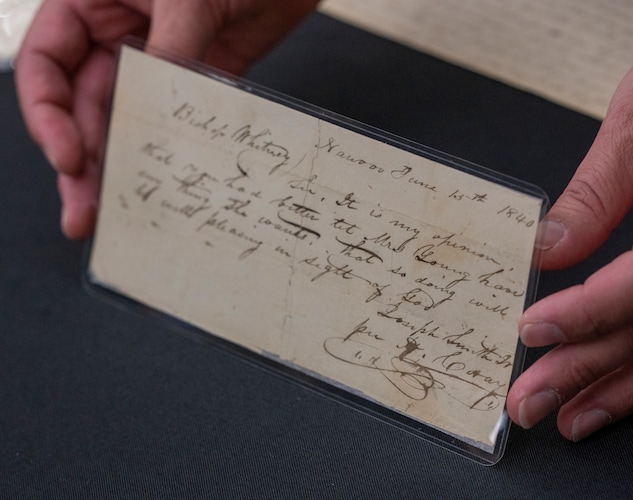 Nauvoo June 15th 1840
Bishop Whitney
Sir, It is my opinion,
that you had better let Mrs Young have
any thing she wants. That so doing will
be well pleasing in sight of God
Joseph Smith Jr
per H. Coray